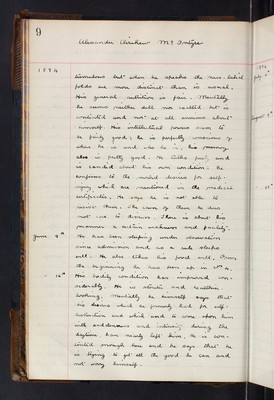 9
Alexander Austen McIntyre
1894
1894
July 4th
tremulous but when he speaks the naso-labial
folds are more distinct than is usual.
His general nutrition is fair. Mentally
he seems neither dull nor excited but is
contented and not at all anxious about
himself. His intellectual powers seem to
be fairly good; he is perfectly conscious of
where he is and who he is; his memory
also is pretty good. He talks freely and
is candid about his own condition: he
confesses to the morbid desires for self-
injury, which are mentioned in the medical
certificates. He says he is not able to
resist them. The cause of them, he does
not care to discuss. There is about his
manner a certain meekness and facility.
August 9th
June 9th
He has been sleeping under observation
since admission and as a rule sleeps
well. He also takes his food well. From
the beginning he has been up in
16th
His bodily condition has improved con-
siderably. He is stouter and healthier
looking. Mentally he himself says that
the desire which he formerly had for self-
destruction and which used to come upon him
with suddenness and intensity during the
daytime, has nearly left him. He is con-
tented enough here and he says that he
is trying to get all the good he can and
not worry himself.